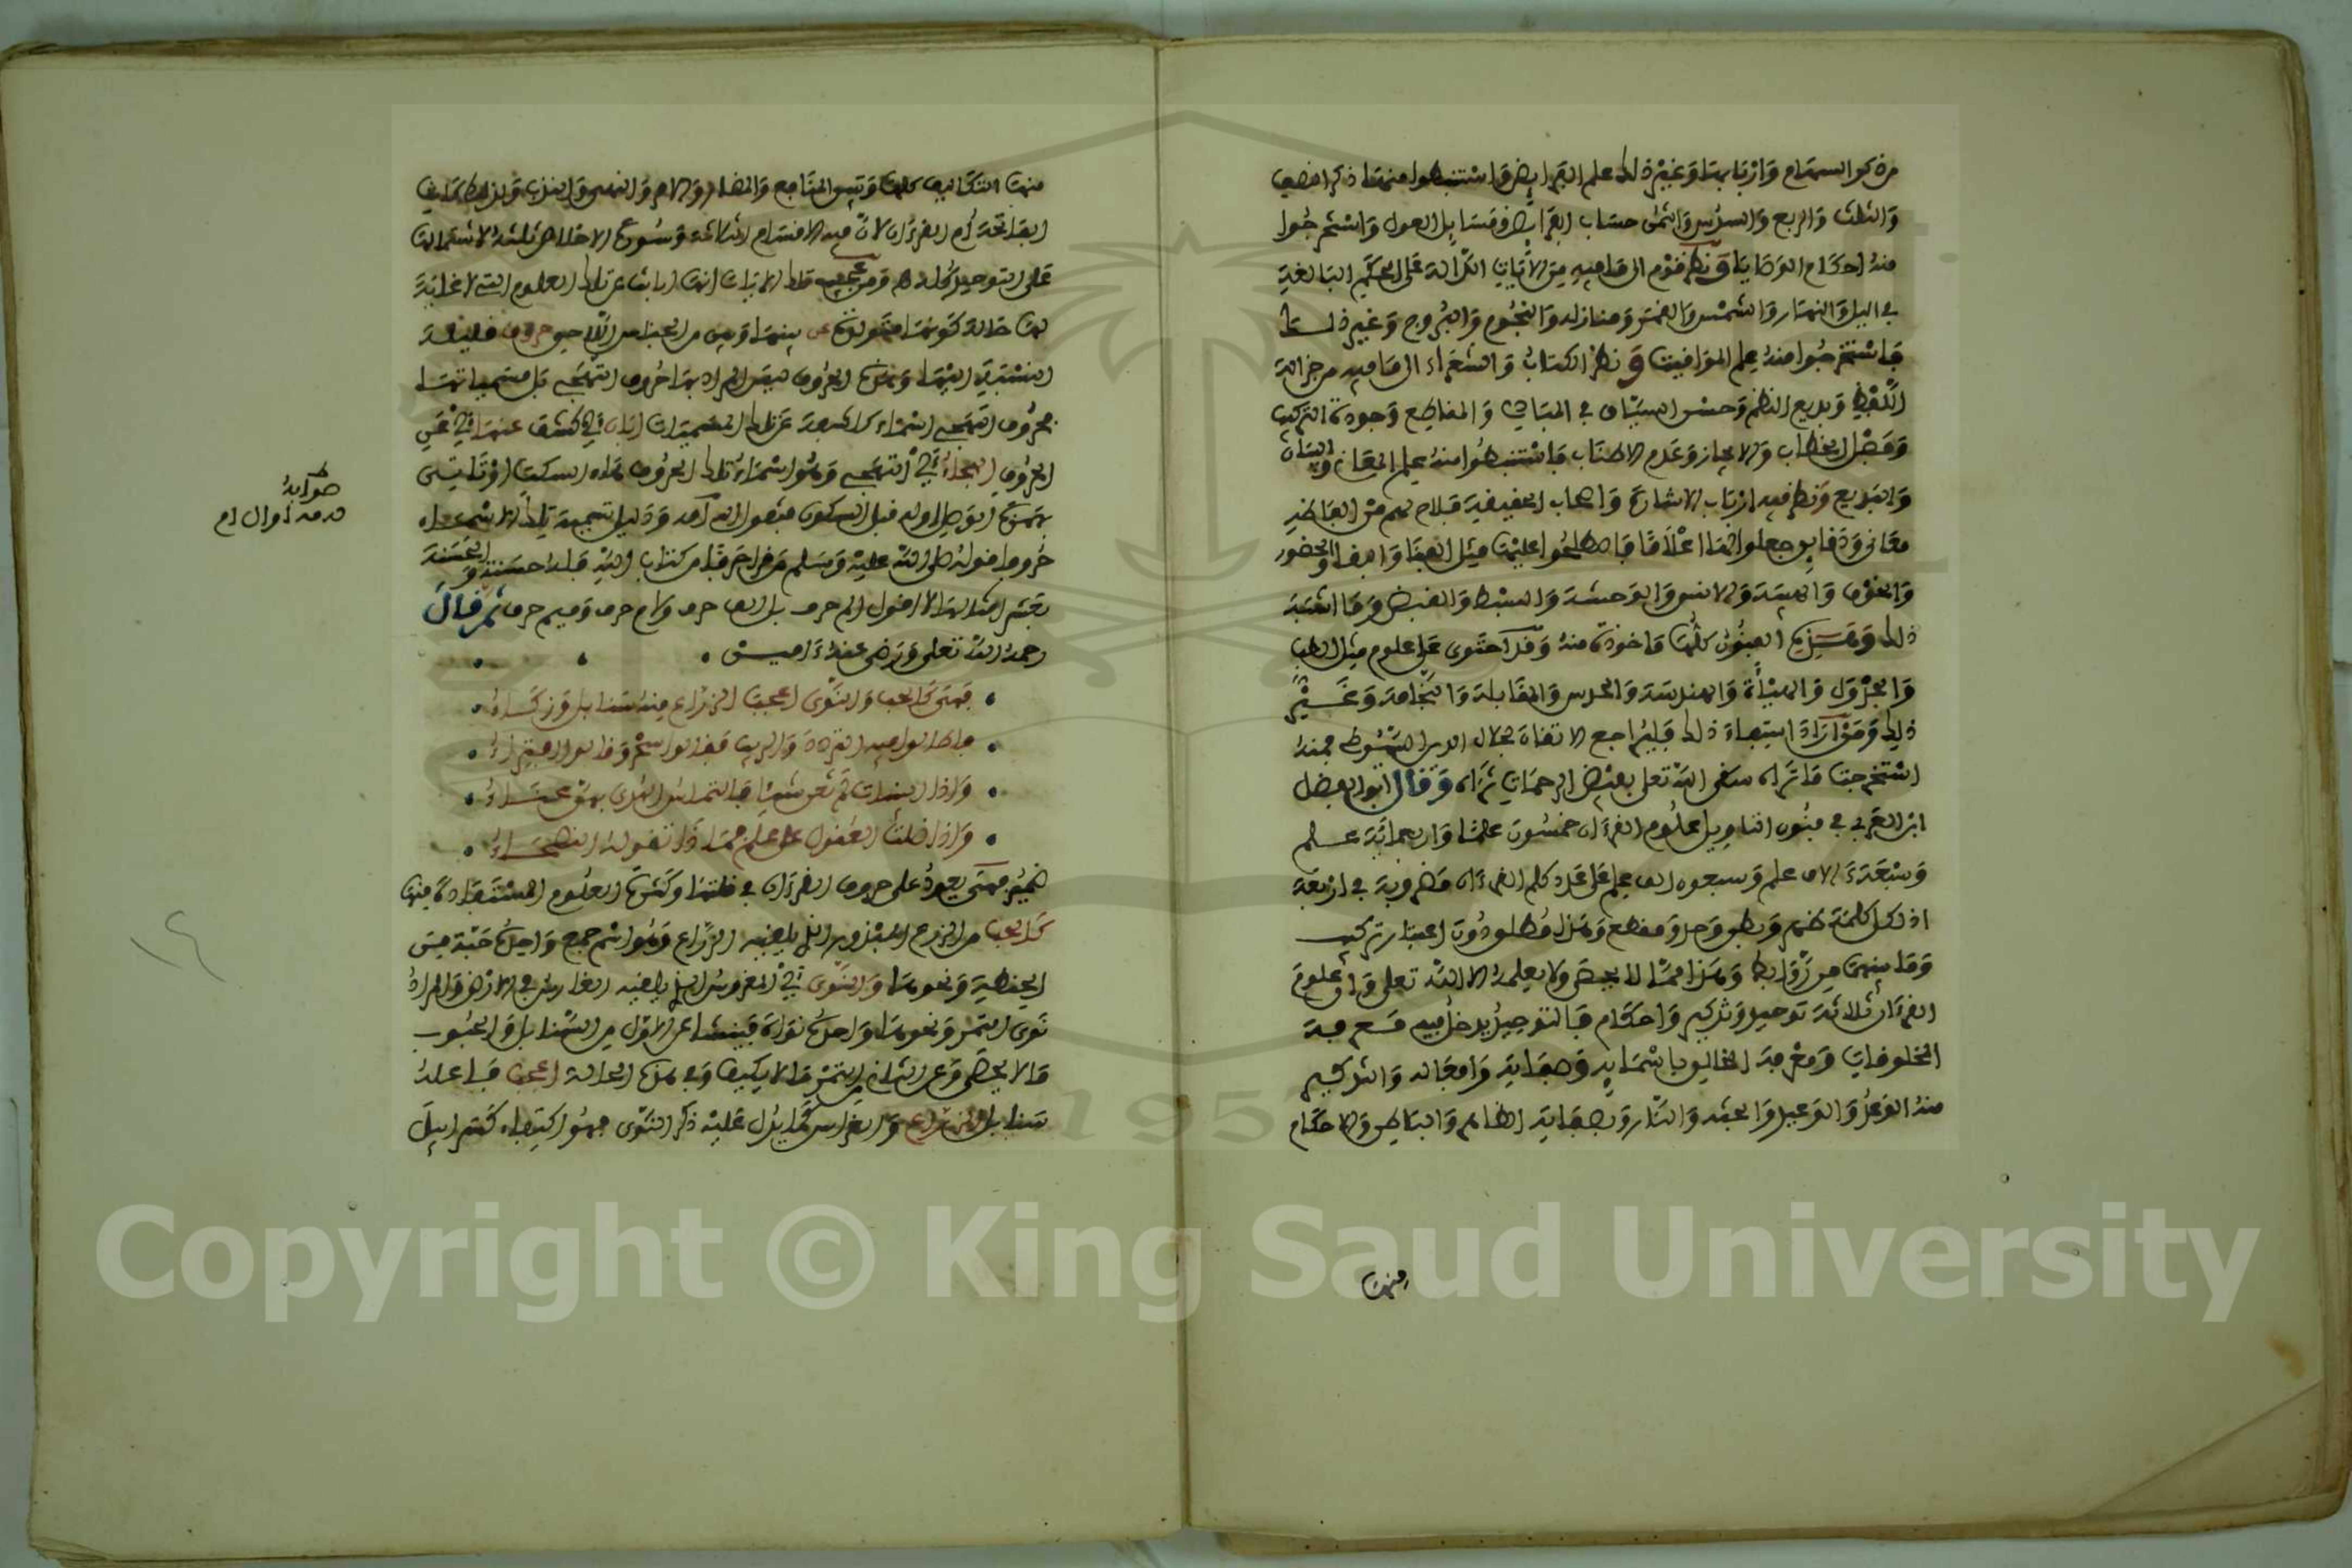 من ذكر السهام وأربابها وغير ذلك علم الفرائض واستنبطوا منها ذكر النصف
والثلث والربع والسدس والثمن حساب الفرائض ومسائل العول واستخرجوا
منه أحكام الوصايا ونظر قوم إلى ما فيه من الآيات الدالة على الحكم البالغة
في اليل والنهار والشمس والقمر ومنازله والنجوم والبروج وغير ذلك
فاستخرجوا منه علم المواقيت ونظر الكتاب والشعراء إلى ما فيه من جزالة
اللفظ وبديع النظم وحسن السياق في المبادي والمقاطع وجودة التركيب
وفضل الخطاب والإيجاز وعدم الاطناب فاستنبطوا منه علم المعاني والبيان
والبديع ونظر فيه أرباب الإشارة وأصحاب الحقيقة فلاح لهم من ألفاظه
معاني ودقايق جعلوا لها أعلاما فاصطلحوا عليها مثل الفنا والبقا والحضور
والخوف والهيبة والانس والوحشة والبسط والقبض وما أشبه
ذلك وهذه الفنون كلها ماخوذة منه وقد احتوى على علوم مثل الطب
والجدول والهيأة والهندسة والجبر والمقابلة والنجامة وغير
ذلك ومن أراد استيعاء ذلك فليراجع الاتقان لجلال الدين السيوطي فمنه
استخرجت ما تراه سقى الله تعلى بفيض الرحمات ثراه وقال أبو الفضل
ابن العربي في فنون التاويل علوم القرءان خمسون علما وأربعمائة علم
وسبعة ءالاف علم وسبعون ألف علم على عدد كلم القرءان مضروبة في أربعة
اذ لكل كلمة ظهر وبطن وحد ومقطع وهذا مطلق دون اعتبار تركيب
وما بينها من روابط وهذا مما لا يحصى ولا يعلمه الا الله تعلى وأم علوم
القرءان ثلاثة توحيد وتذكير وأحكام فالتوحيد يدخل فيه معرفة
المخلوقات ومعرفة الخالق بأسمائه وصفاته وأفعاله والتذكير
منه الوعد والوعيد والجنة والنار وتصفية الظاهر والباطن والاحكام
منها
منها التكاليف كلها وتبيين المنافع والمضار والامر والنهي والندب ولذلك كانت
الفاتحة أم القرءان لأن فيها الأقسام الثلاثة وسورة الإخلاص ثلثه لاشتمالها
على التوحيد كله ومن عجيب تلك الايات انها أبانت عن تلك العلوم التي لا غاية
لها حالة كونها متولدة عن بينها وبين من الجناس اللاحق حروف قليلة
بالنسبة اليها وهذه الحروف ليس المراد بها حروف التهجي بل مسمياتها
فحروف التهجي أسماء كاشفة عن تلك المسميات أبان أي كشف عنها أي عن
الحروف الهجاء أي التهجي وهو أسماء تلك الحروف بهاء السكت أو تاتي
بهمزة الوصل اوله قبل السكون فتقول الله آمد ودليل تسمية تلك الاسماء
حروفا قوله صلى الله عليه وسلم من قرأ حرفا من كتاب الله فله حسنة والحسنة
بعشر امثالها لا أقول الم حرف بل ألف حرف ولام حرف وميم حرف ثم قال
رحمه الله تعلى ورضي عنه ءاميـن
فهي كالحب والنوى أعجب الزراع منه سنابل وزكاء
فأطالوا فيه التردد والريب فقالوا سحر وقالوا افتراء
وإذا البينات لم تغن شيئا فالتماس الهدى بهن عناء
وإذا ضلت العقول على علم فماذا تقوله النصحاء
ضمير فهي يعود على حروف القرءان في قلتها وكثرة العلوم المستفادة منها
كالحب من الزرع المبذور الذي يلقيه الزراع وهو اسم جمع واحده حبة من
الحنطة ونحوها والنوى أي المغروس الذي يلقيه الغارس في الارض والمراد
نوى التمر ونحوها واحده نواة فينشا عن الأول من السنابل والحبوب
ما لا يحصى وعن الثاني من التمر ما لا يكيف وفي هذه الحالة أعجب فاعله
سنابل الزراع والغراس كما يدل عليه ذكر النوى فهو اكتفاء كسرابيل
صوابه